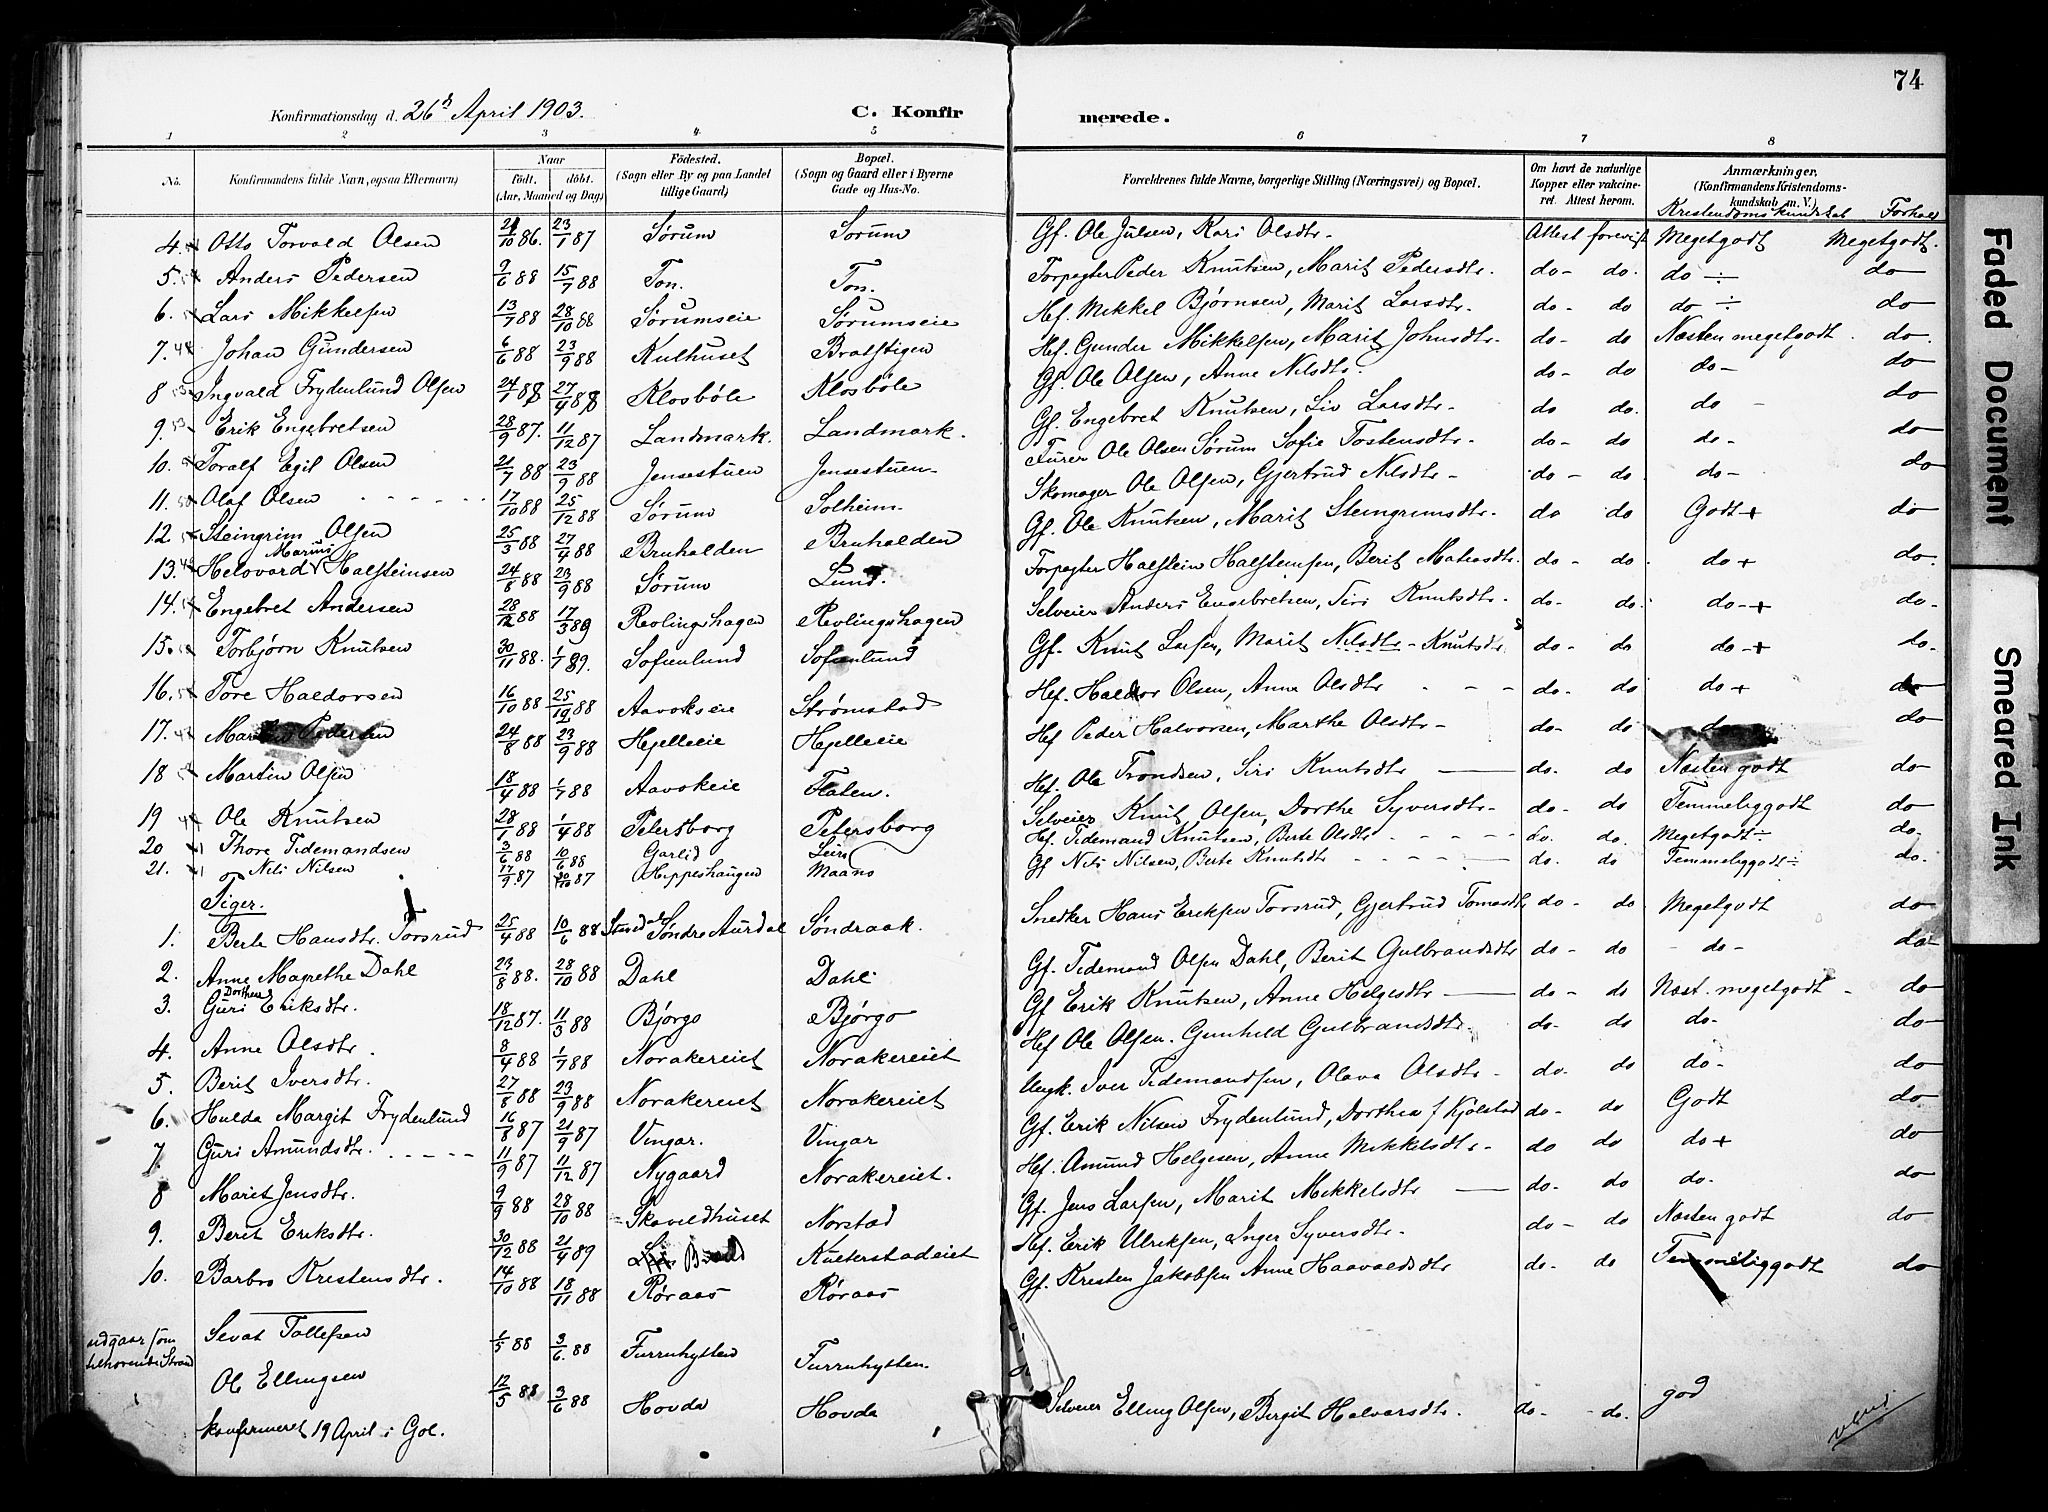 74
Konfirmationsdag d. 26de April 1903. C. Konfirmerede.
1 2 3 4. 5 6 7 8
No. Konfirmandens fulde Navn, ogsaa Efternavn) Naar födt. döbt. (Aar, Maaned og Dag) Födested. (Sogn eller By og paa Landet tillige Gaard) Bopæl. (Sogn og Gaard eller i Byerne Gade og Hus-No. Forældrenes fulde Navne, borgerlige Stilling (Næringsvei) og Bopæl. Om havt de naturlige Kopper eller vakcineret. Attest herom. Anmærkninger, (Konfirmandens Kristendomskundskab m. V.)
Kristendomskundskab Forhold
4. Otto Torvald Olsen 21/10 86. 23/1 87 Sørum Sorum Gf. Ole Julsen, Kari Olsdtr. Attest forevist Megetgodt Megetgodt.
5. Anders Pedersen 9/6 88 15/7 88 Ton. Ton. Forpagter Peder Knutsen, Marit Pedersdtr. do- do. do ÷ do
6. Lars Mikkelsen 13/7 88 28/10 88 Sørumseie Sørumseie Hf. Mikkel Bjørnsen, Marit Larsdtr. do- do do ÷ do
7. Johan Gundersen 6/6 88 23/9 88 Kulhuset Bratstigen Hf. Gunder Mikkelsen, Marit Johnsdtr. do- do Næsten megetgodt. do.
8 Ingvald Frydenlund Olsen 24/1 88 27/4 88 Klosbøle Klosbøle Gf. Ole Olsen, Anne Nilsdtr. do- do do- do
9. Erik Engebretsen 28/9 87. 11/12 87 Landmark. Landmark. Gf. Engebret Knutsen, Liv Larsdtr. do do. do - do
10. Toralf Egil Olsen 21/7 88 23/9 88 Jensestuen Jensestuen Furer Ole Olsen Sørum Sofie Tostensdtr. do- do do- do
11. Olaf Olsen 17/10 88 25/12 88 Sørum Solheim. Skomager Ole Olsen, Gjertrud Nilsdtr - do - do. do- do
12. Steingrim Olsen 25/3 88 27/4 88 Bruhalden Bruhalden Gf. Ole Knutsen, Marit Steingrimsdtr. do do Godt + do
13. Helvard Marius Halsteinsen 24/8 88 23/9 88 Sørum Lund. Forpagter Halstein Halsteinsen, Berit Matiasdtr. do- do do + do.
14. Engebret Andersen 28/12 88 17/3 89 Revlingshagen Revlingshagen Selveier Anders Engebretsen, Siri Knutsdtr. do- do. do-+ do.
15. Torbjørn Knutsen 30/11 88. 1/1 89. Sofienlund Sofienlund Gf. Knut Larsen, Marit Nilsdtr - Knutsdtr do- do do-+ do.
16. Tore Haldorsen 16/10 88 25/12 88 Aavokseie Strømstad Hf. Haldor Olsen, Anne Olsdtr - - - do- do do + do
17. Pedersen 24/8 88 23/9 88 Hjelleeie Hjelleeie Hf Peder Halvorsen, Marthe Olsdtr. do- do do do
18 Martin Olsen 18/4 88 1/7 88 Aavokeie Flaten. Hf. Ole Trondsen, Siri Knutsdtr do- do Næsten godt do
19 Ole Knutsen 28/1 88 1/4 88 Petersborg Petersborg Selveier Knut Olsen, Dorthe Syversdtr- do- do Temmeliggodt do
20 Thore Tidemandsen 3/6 88 10/6 88 Garlid Leira Hf. Tidemand Knutsen, Berte Olsdtr - - - - - do. do. Megetgodt ÷ do.
21. Nils Nilsen 17/9 87 30/10 87 Hippeshaugen Maans Gf Nils Nilsen, Berte Knutsdtr - - - - do. do Temmeliggodt ÷ do.
Piger.
1. Berte Hansdtr. Torsrud 25/4 88 10/6 88 Søndre Aurdal Søndraak. Snedker Hans Eriksen Torsrud, Gjertrud Tomasdtr do- do. Megetgodt do
2. Anne Magrethe Dahl 23/8 88. 28/10 88 Dahl Dahl. Gf. Tidemand Olsen Dahl, Berit Gulbrandsdtr do- do - do- do-
3. Guri Dorthea Eriksdtr. 18/12 87. 11/3 88 Bjørgo Bjørgo Gf Erik Knutsen, Anne Helgesdtr - do- do Næst. megetgodt - do
4. Anne Olsdtr. 8/4 88 1/7 88 Norakereiet Norakereiet Hf Ole Olsen. Gunhild Gulbrandsdtr. do- do do- do
5. Berit Iversdtr. 27/8 88 23/9 88 Norakereiet Norakereiet Ungk. Iver Tidemandsen, Olava Olsdtr- do. do do- do
6. Hulda Margit Frydenlund 16/8 87 21/9 87 Vingar. Vingar Gf. Erik Nilsen Frydenlund, Dorthea f Kjølstad do- do Godt do
7 Guri Amundsdtr. - - - - 11/9 87 11/12 87 Nygaard Norakereiet. Hf. Amund Helgesen, Anne Mikkelsdtr- do do do + do
8 Marit Jensdtr. 9/9 88 28/10 88 Skavildhuset Norstad Gf. Jens Larsen, Marit Mikkelsdtr - do- do do- do
9. Berit Eriksdtr. 30/12 88 21/4 89 Kueterstadeiet Hf. Erik Ulriksen, Inger Syversdtr. do - do Næsten godt do
10. Barbro Kristensdtr. 14/10 88 18/11 88 Røraas Røraas Gf. Kristen Jakobsen Anne Haavaldsdtr do- do Temmeliggodt do
udgaar som tilhørende Strand Sevat Tollefsen 1/5 88 3/6. 88 Furruhytten Furruhytten.
Ole Ellingsen 12/5 88 3/6 88 Hovda Hovda Selveier Elling Olsen, Bergit Halvorsdtr. do- - do. god
konfirmeret 19 April i Gol.
Faded Document
Smeared Ink